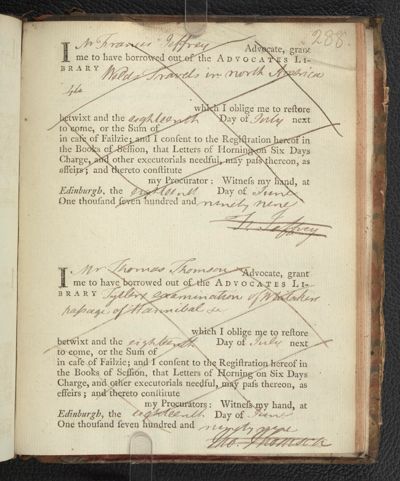 288.
I Mr Francis Jeffrey Advocate, grant
me to have borrowed out of the ADVOCATES LI-
BRARY Welds Travels in north America
4to
which I oblige me to reſtore
betwixt and the eighteenth Day of July next
to come, or the Sum of
in caſe of Failzie; and I conſent to the Regiſtration hereof in
the Books of Seſſion, that Letters of Horning on Six Days
Charge, and other executorials needful, may paſs thereon, as
affeirs; and thereto conſtitute
my Procurator: Witneſs my hand, at
Edinburgh, the eighteenth Day of June
One thouſand ſeven hundred and ninety nine
F. Jeffrey
I Mr Thomas Thomson Advocate, grant
me to have borrowed out of the ADVOCATES LI-
BRARY Tytlers examination of Whitakers
passage of Hannibal &c
which I oblige me to reſtore
betwixt and the eighteenth Day of July next
to come, or the Sum of
in caſe of Failzie; and I conſent to the Regiſtration hereof in
the Books of Seſſion, that Letters of Horning on Six Days
Charge, and other executorials needful, may paſs thereon, as
affeirs; and thereto conſtitute
my Procurators: Witneſs my hand, at
Edinburgh, the eighteenth Day of June
One thouſand ſeven hundred and ninety nine
Tho. Thomson